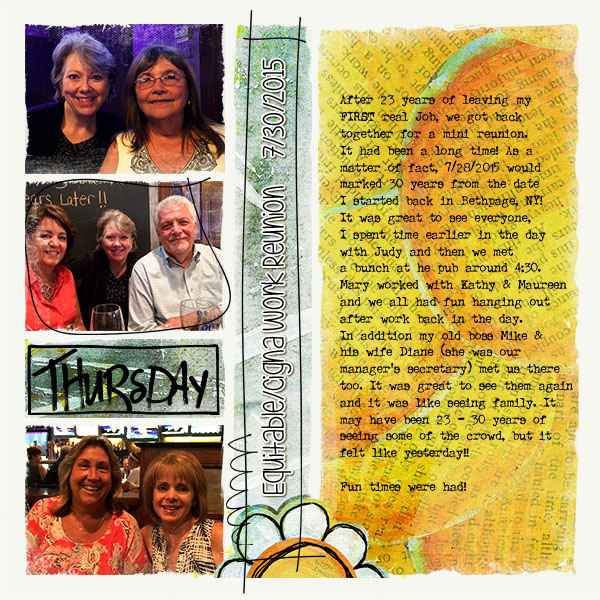 ears Later!!
THURSDAY
Equitable/cgna work Reunion 7/30/2015
After 23 years of leaving my
FIRST real Job, we got back
together for a mini reunion.
It had been a long time! As a
matter of fact, 7/28/2015 would
marked 30 years from the date
I started back in Bethpage, NY!
It was great to see everyone,
I spent time earlier in the day
with Judy and then we met
a bunch at he pub around 4:30.
Mary worked with Kathy & Maureen
and we all had fun hanging out
after work back in the day.
In addition my old boss Mike &
his wife Diane (she was our
manager's secretary) met us there
too. It was great to see them again
and it was like seeing family. It
may have been 23 - 30 years of
seeing some of the crowd, but it
felt like yesterday!!
Fun times were had!